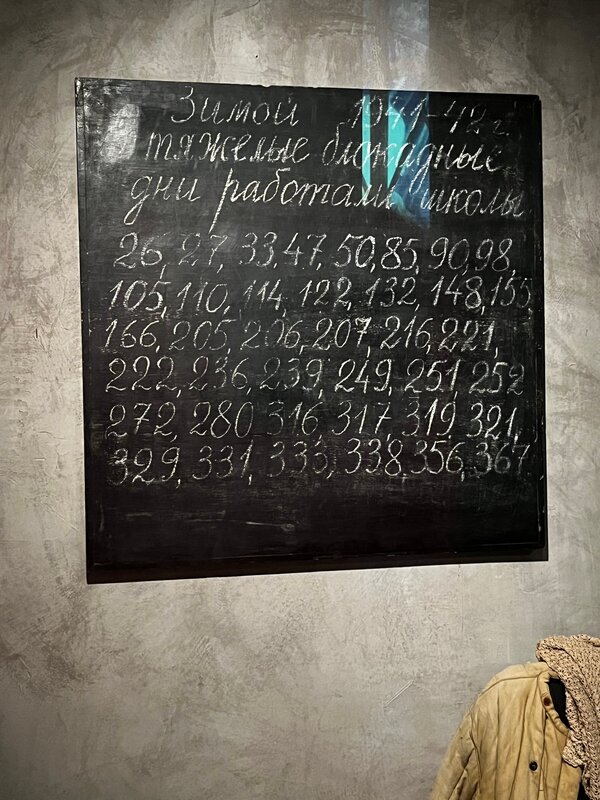 Зимой 1941-42 г.
тяжелые блокадные
дни работали школы
26, 27, 33, 47, 50, 85, 90, 98,
105, 110, 114, 122, 132, 148, 155
166, 205, 206, 207, 216, 221,
222, 236, 239, 249, 251, 252
272, 280 316, 317, 319, 321,
329, 331, 333, 338, 356, 367